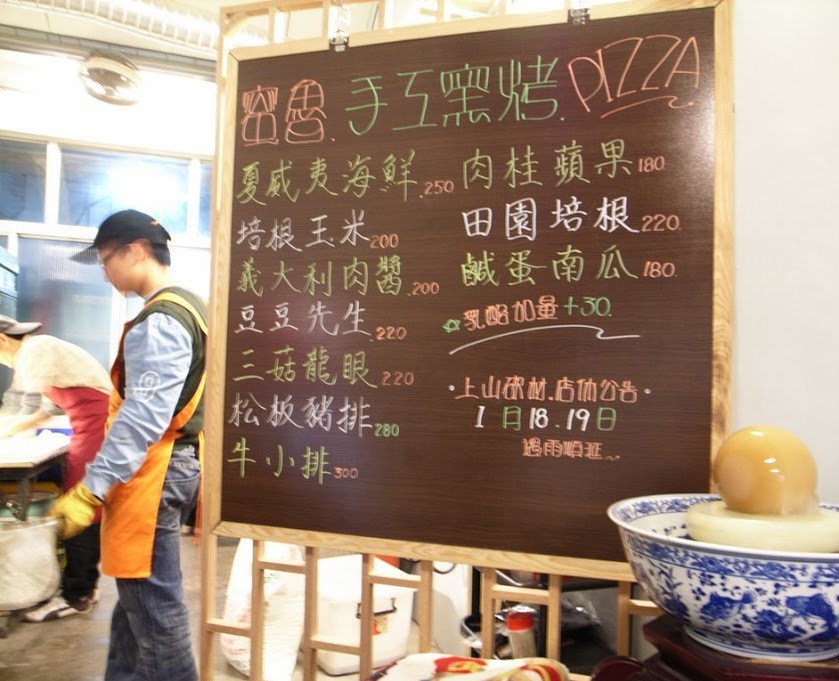 窯魯.手工窯烤.PIZZA
夏威夷海鮮.250
培根玉米200
義大利肉醬.200
豆豆先生.220
三菇龍眼220
松板豬排280
牛小排300
肉桂蘋果180
田園培根220.
鹹蛋南瓜180.
☆乳酪加量+30.
·上山砍材.店休公告·
1月18.19日
遇雨順延~